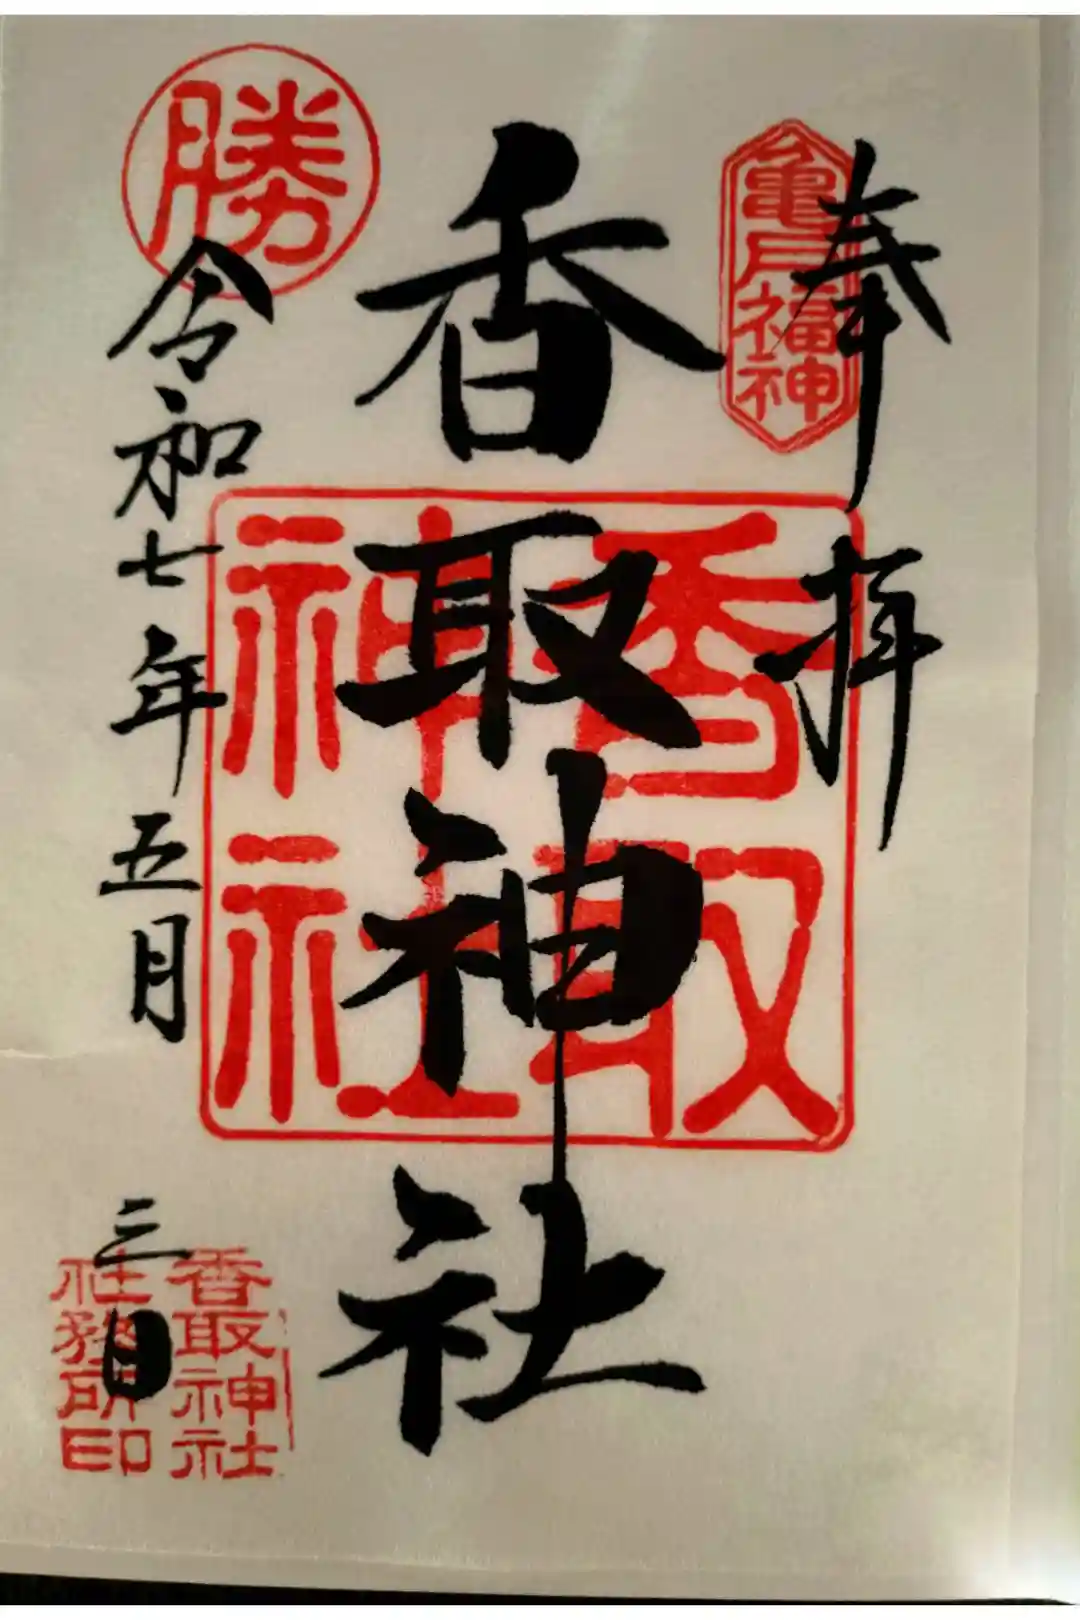 奉拝
亀戸福神
香取神社
香取
神社
勝
令和七年五月三日
香取神社
社務所印